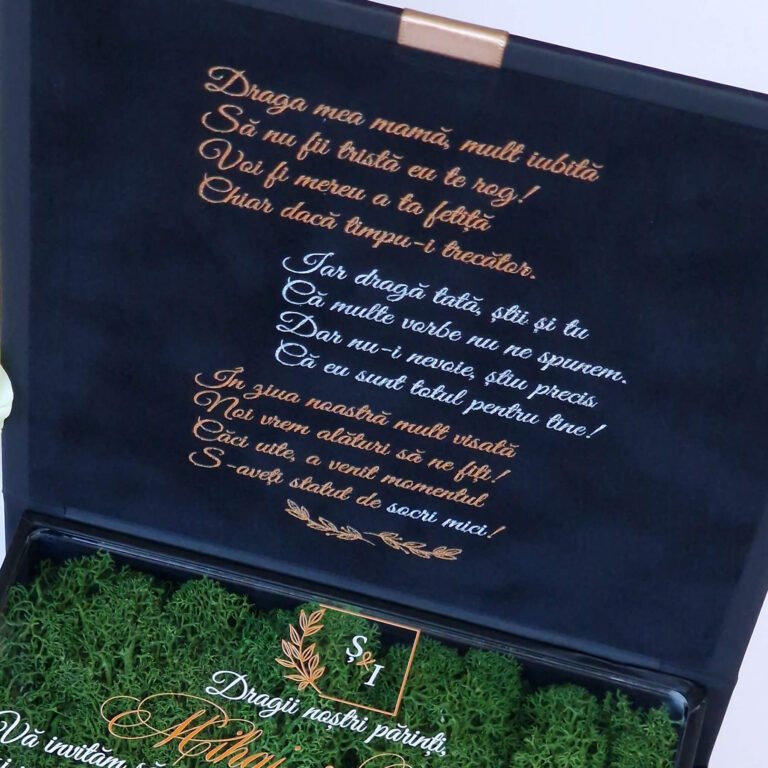 Draga mea mamă, mult iubită
Să nu fii tristă eu te rog!
Voi fi mereu a ta fetiță
Chiar dacă timpu-i trecător.
Iar dragă tată, știi și tu
Că multe vorbe nu ne spunem.
Dar nu-i nevoie, știu precis
Că eu sunt totul pentru tine!
În ziua noastră mult visată
Noi vrem alături să ne fiți!
Căci uite, a venit momentul
S-aveți statut de socri mici!
Ș&I
Dragii noștri părinți,
Vă invităm